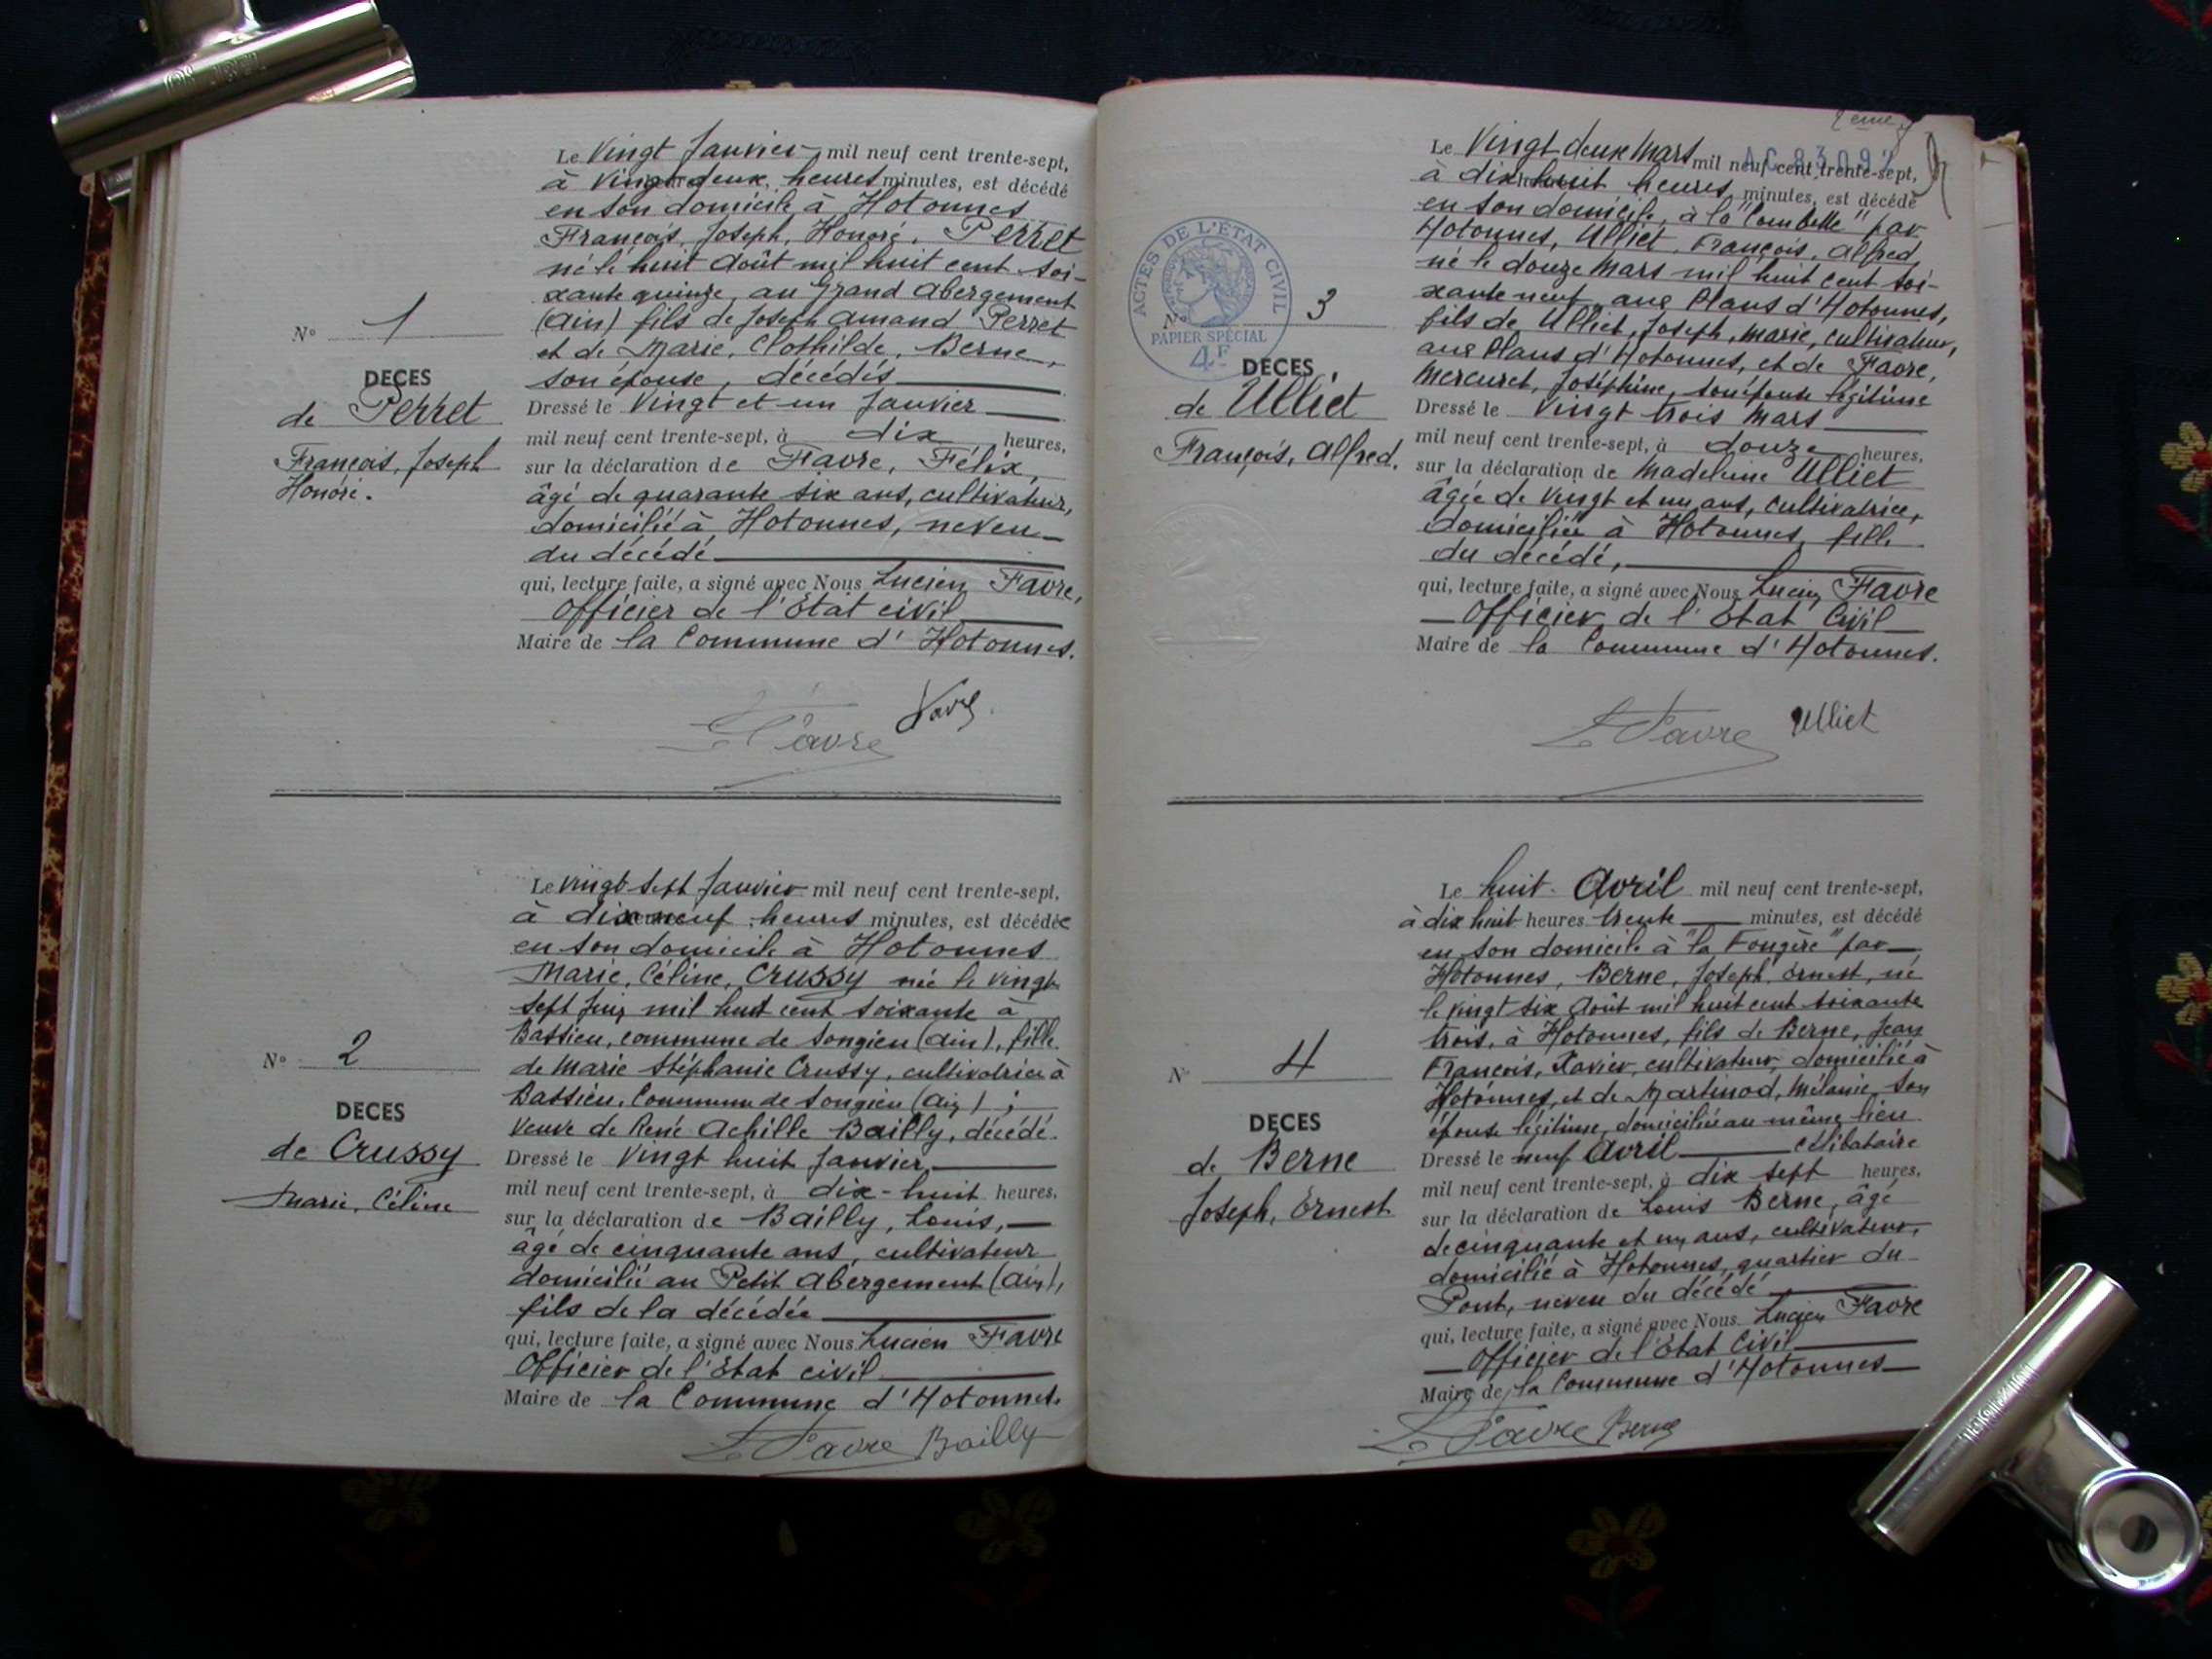 Le Vingt Janvier mil neuf cent trente-sept,
à Vingt deux, heures minutes, est décédé
en son domicile à Hotonnes
François, Joseph, Honoré, Perret
né le huit Août mil huit cent soi-
xante quinze, au grand abergement
(Ain) fils de Joseph Amand Perret
et de Marie, Clothilde, Berne,
son épouse, décédés
N° 1
DECES
de Perret
François, Joseph
Honoré.
Dressé le Vingt et un Janvier
mil neuf cent trente-sept, à dix heures,
sur la déclaration de Favre, Félix,
âgé de quarante six ans, cultivateur,
domicilié à Hotonnes, neveu
du décédé
qui, lecture faite, a signé avec Nous Lucien Favre,
Officier de l'Etat civil
Maire de la Commune d'Hotonnes.
L Favre Favre
Le vingt sept Janvier mil neuf cent trente-sept,
à dix neuf heures minutes, est décédée
en son domicile à Hotonnes
Marie, Céline, Crussy née le vingt
sept Juin mil huit cent soixante à
Bassieu, commune de Songieu (Ain), fille
de Marie Stéphanie Crussy, cultivatrice à
Bassieu, Commune de Songieu (Ain) ;
Veuve de René Achille Bailly, décédé.
N° 2
DECES
de Crussy
Marie, Céline
Dressé le Vingt huit Janvier,
mil neuf cent trente-sept, à dix-huit heures,
sur la déclaration de Bailly, Louis,
âgé de cinquante ans, cultivateur
domicilié au Petit Abergement (Ain),
fils de la décédée
qui, lecture faite, a signé avec Nous Lucien Favre
Officier de l'Etat civil
Maire de la Commune d'Hotonnes.
L Favre Bailly
2ème
Le Vingt-deux Mars mil neuf cent trente-sept,
à dix huit heures minutes, est décédé
en son domicile, à la "Combette" par
Hotonnes, Ulliet, François, Alfred,
né le douze Mars mil huit cent soi-
xante neuf, aux Plans d'Hotonnes,
fils de Ulliet, Joseph, Marie, cultivateur,
aux Plans d'Hotonnes, et de Favre,
Mercuret, Joséphine, son épouse légitime
ACTES DE L'ETAT CIVIL
PAPIER SPECIAL
4F
N° 3
DECES
de Ulliet
François, Alfred.
Dressé le Vingt trois Mars
mil neuf cent trente-sept, à douze heures,
sur la déclaration de Madeleine Ulliet
âgée de Vingt et un ans, cultivatrice,
domiciliée à Hotonnes, fille
du décédé,
qui, lecture faite, a signé avec Nous Lucien Favre
Officier de l'Etat Civil
Maire de la Commune d'Hotonnes.
L Favre Ulliet
Le huit Avril mil neuf cent trente-sept,
à dix huit heures trente minutes, est décédé
en son domicile à "la Fougère" par
Hotonnes, Berne, Joseph, Ernest, né
le vingt six Août mil huit cent soixante
trois, à Hotonnes, fils de Berne, Jean
François, Xavier, cultivateur, domicilié à
Hotonnes, et de Martinod, Mélanie, son
épouse légitime, domiciliée au même lieu
célibataire
N° 4
DECES
de Berne
Joseph, Ernest
Dressé le neuf Avril
mil neuf cent trente-sept, à dix sept heures,
sur la déclaration de Louis Berne, âgé
de cinquante et un ans, cultivateur,
domicilié à Hotonnes, quartier du
Pont, neveu du décédé
qui, lecture faite, a signé avec Nous Lucien Favre
Officier de l'Etat Civil
Maire de la Commune d'Hotonnes
L Favre Berne